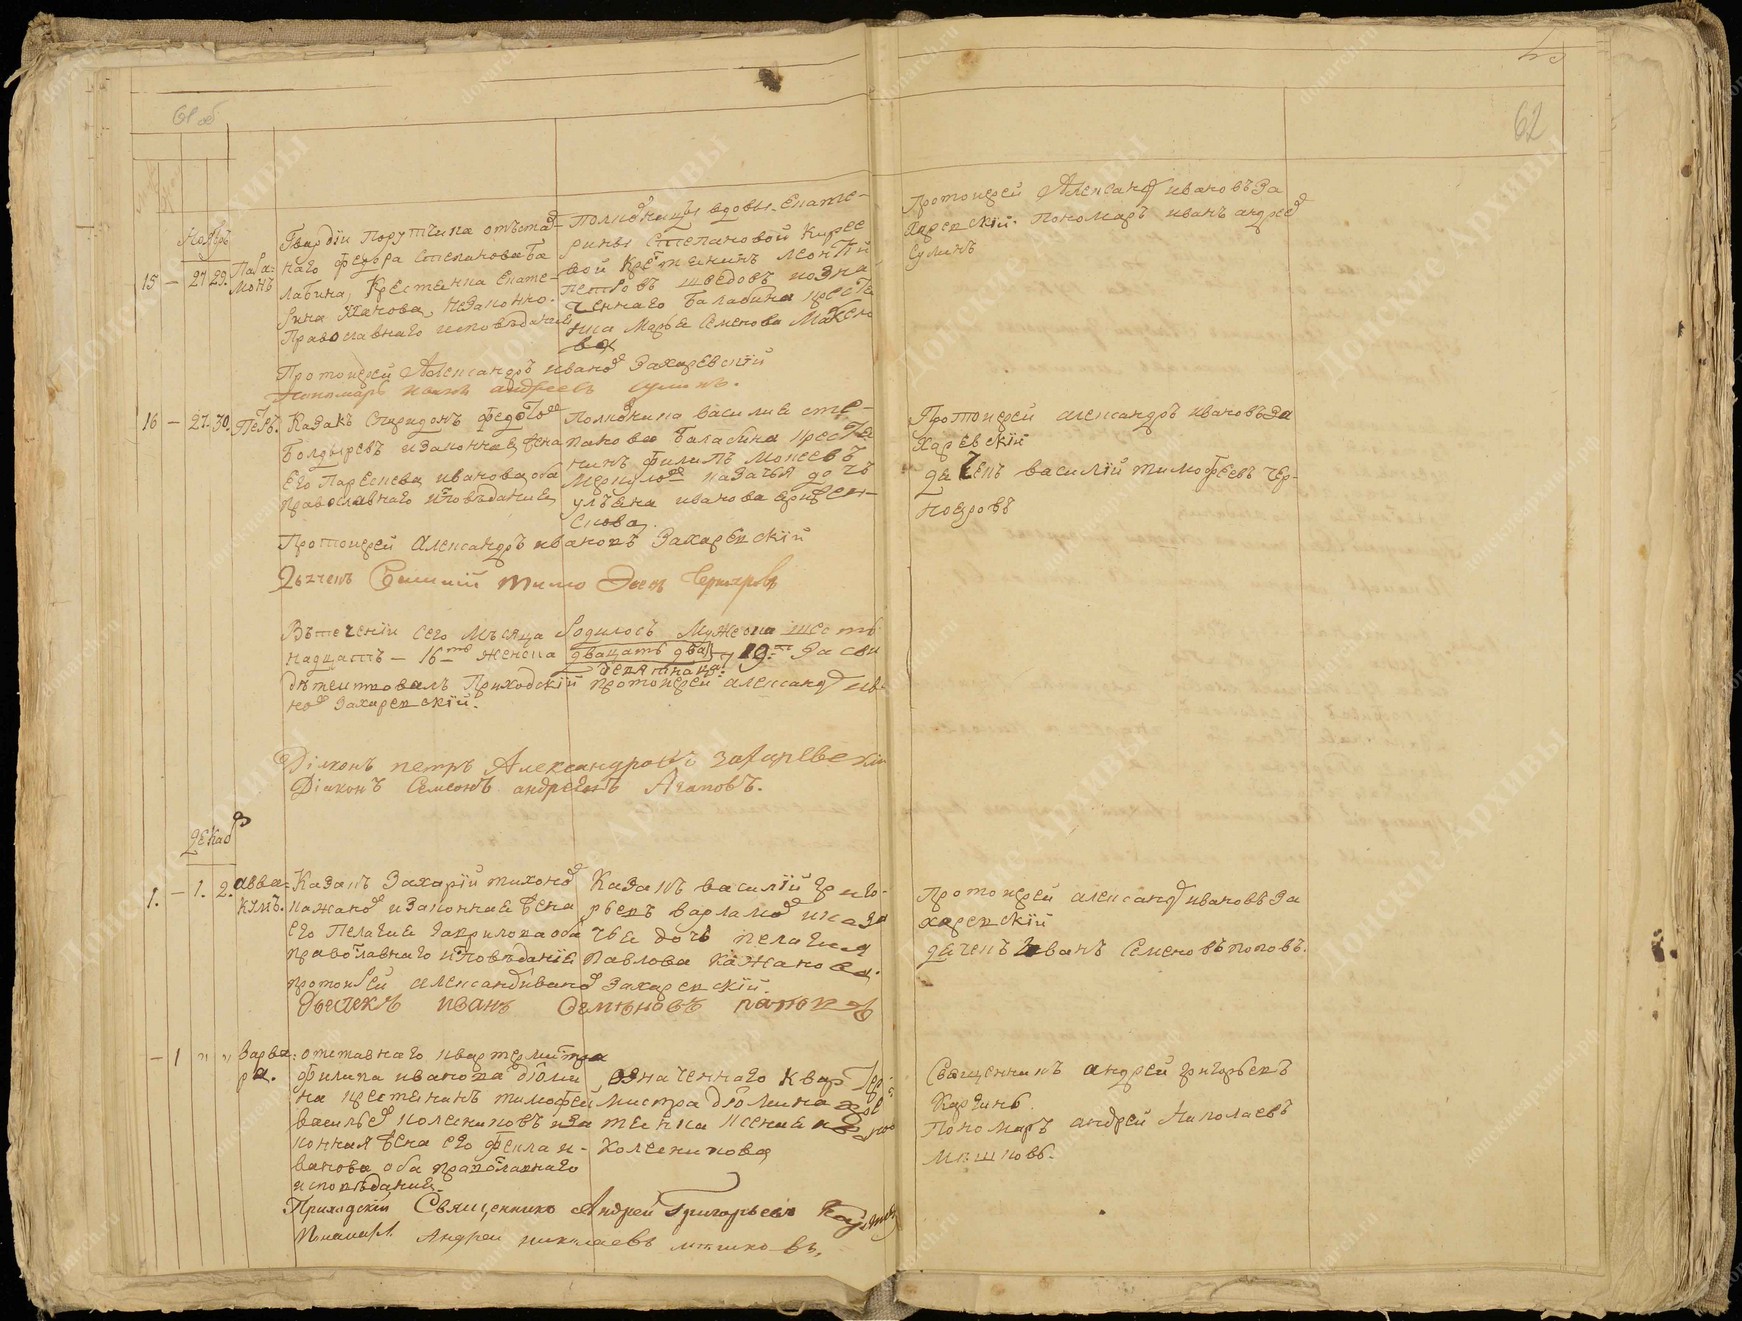 61 об
62
Ноября
15 — 27 29. Пара-
монъ
Гвардіи Порутчика отъстав-
наго Федора Степанова Ба
лабина, Крестьянка Екате-
рина Иванова, Незаконно.
Православнаго исповѣданія
Протоиерей Александръ Иванов Захаревскій
Пономарь Иванъ Андреевъ Сулинъ.
Полковницы вдовы Екате-
рины Степановой Кирее
вой Крестьянинъ Леонтій
Петровъ Шведовъ и озна
ченнаго Балабина кресть
янка Марья Семенова
Протоиерей Александръ Ивановъ За
харевскій. Пономарь Иванъ Андреев
Сулинъ
16 — 27. 30. Петръ.
Казакъ Спиридонъ Федотов
Болдыревъ и законная жена
его Парасковея Иванова оба
Православнаго исповѣданія
Полковника Василия Сте-
панова Балабина кресть
янинъ Филипъ Моисеевъ
казачья дочь
Ульяна Иванова
Протоиерей Александръ Ивановъ Захаревскій
Дьячекъ Василий Тимофеевъ Чернояровъ
Протоиерей Александръ Ивановъ За
харевскій
дьячекъ Василій Тимофеевъ Чер-
нояровъ
Въ теченіи сего мѣсяца родилось мужеска шест
надцать — 16ть женска двацать два 19ть За сви
девятнацать
дѣтельствовалъ Приходскій протоиерей Александр Ива
нов Захаревскій.
Діаконъ Петръ Александровъ Захаревскій
Діаконъ Семеонъ Андреевъ Агаповъ.
Декаб
1. — 1. 2. Авва-
кумъ.
Казакъ Захарій Тихонов
Кажанов и законная жена
его Пелагия Гаврилова оба
православнаго исповѣданія
Казакъ Василій Григо-
рьевъ Варламов и каза
чья дочь Пелагия
Павлова Кажанова.
протоиерей Александр Иванов Захаревскій.
Дьячекъ Иванъ Семѣновъ Поповъ
Протоиерей Александр Ивановъ За
харевскій
дьячекъ Иванъ Семеновъ Поповъ.
— 1 " " Варва-
ра.
Отставнаго квартермистра
Филипа Иванова Дюми
на крестьянинъ Тимофей
Васильев Колесниковъ и за
конная жена его Фекла И-
ванова оба православнаго
исповѣдания
означеннаго квартер-
мистра Дюмина крес
тьянка Ксения
Колесникова
Приходскій Священникъ Андрей Григорьевъ
Понамарь Андрей Николаевъ
Священникъ Андрей Григорьевъ
Пономарь Андрей Николаевъ